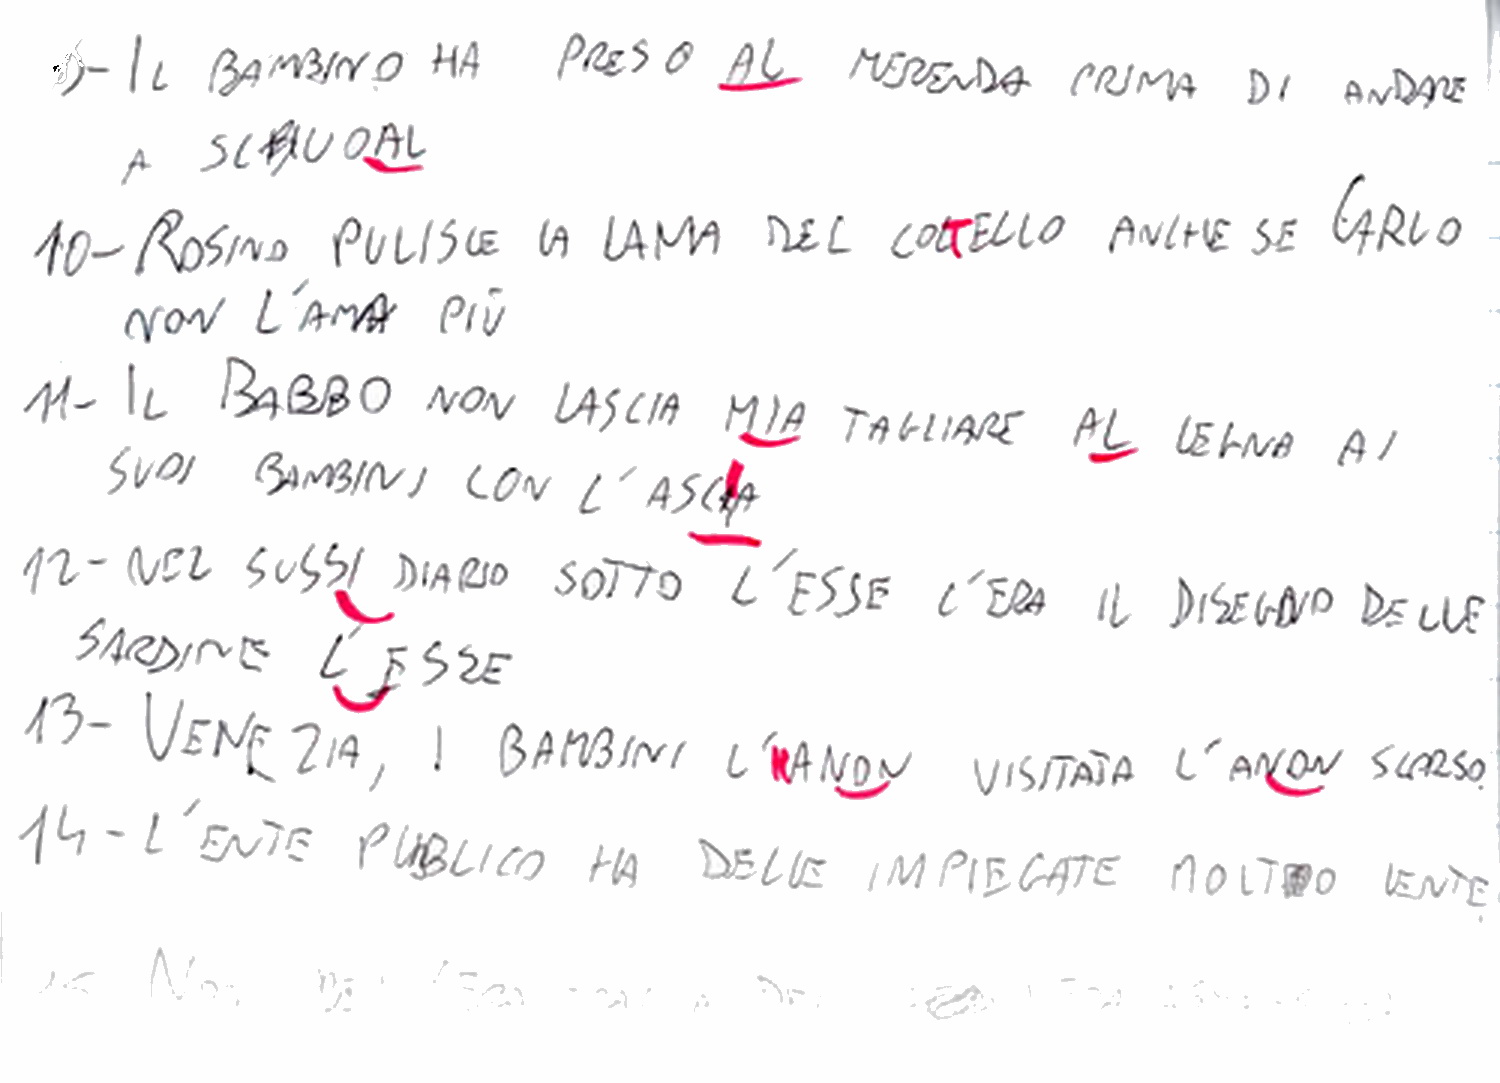 - IL BAMBINO HA PRESO AL MERENDA PRIMA DI ANDARE
A SCUOAL
10- ROSINO PULISCE LA LAMA DEL COLTELLO ANCHE SE CARLO
NON L'AMA PIÙ
11- IL BABBO NON LASCIA MIA TAGLIARE AL LEGNA AI
SUOI BAMBINI CON L'ASCIA
12- NEL SUSSI DIARIO SOTTO L'ESSE C'ERA IL DISEGNO DELLE
SARDINE L'ESSE
13- VENEZIA, I BAMBINI L'HANON VISITATA L'ANON SCORSO.
14- L'ENTE PUBLICO HA DELLE IMPIEGATE MOLTO LENTE.